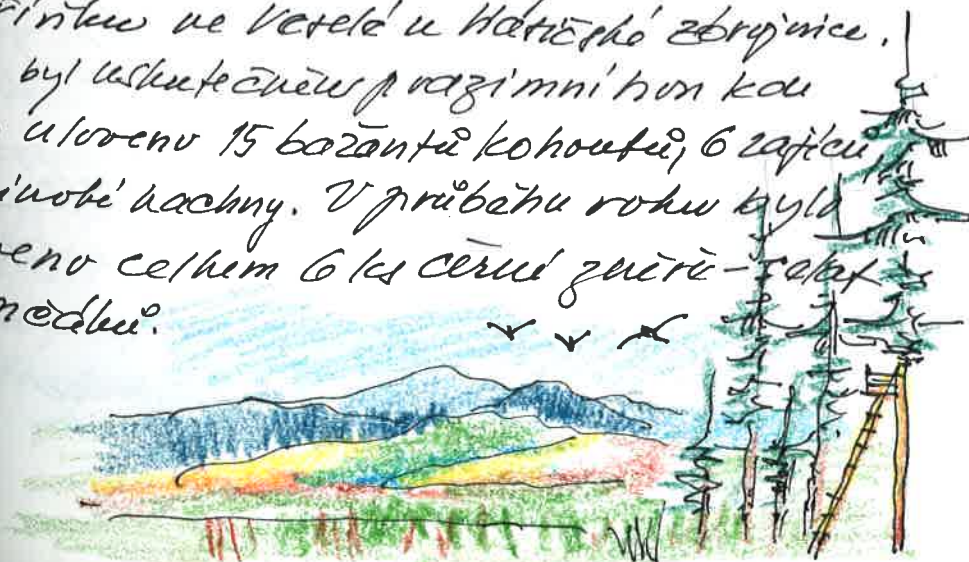 ve Veselé u Hasičské zbrojnice.
byl uskutečněn podzimní hon kde
uloveno 15 bažantů kohoutů, 6 zajíců
kachny. V průběhu roku bylo
veno celkem 6 ks černé zvěře - selat